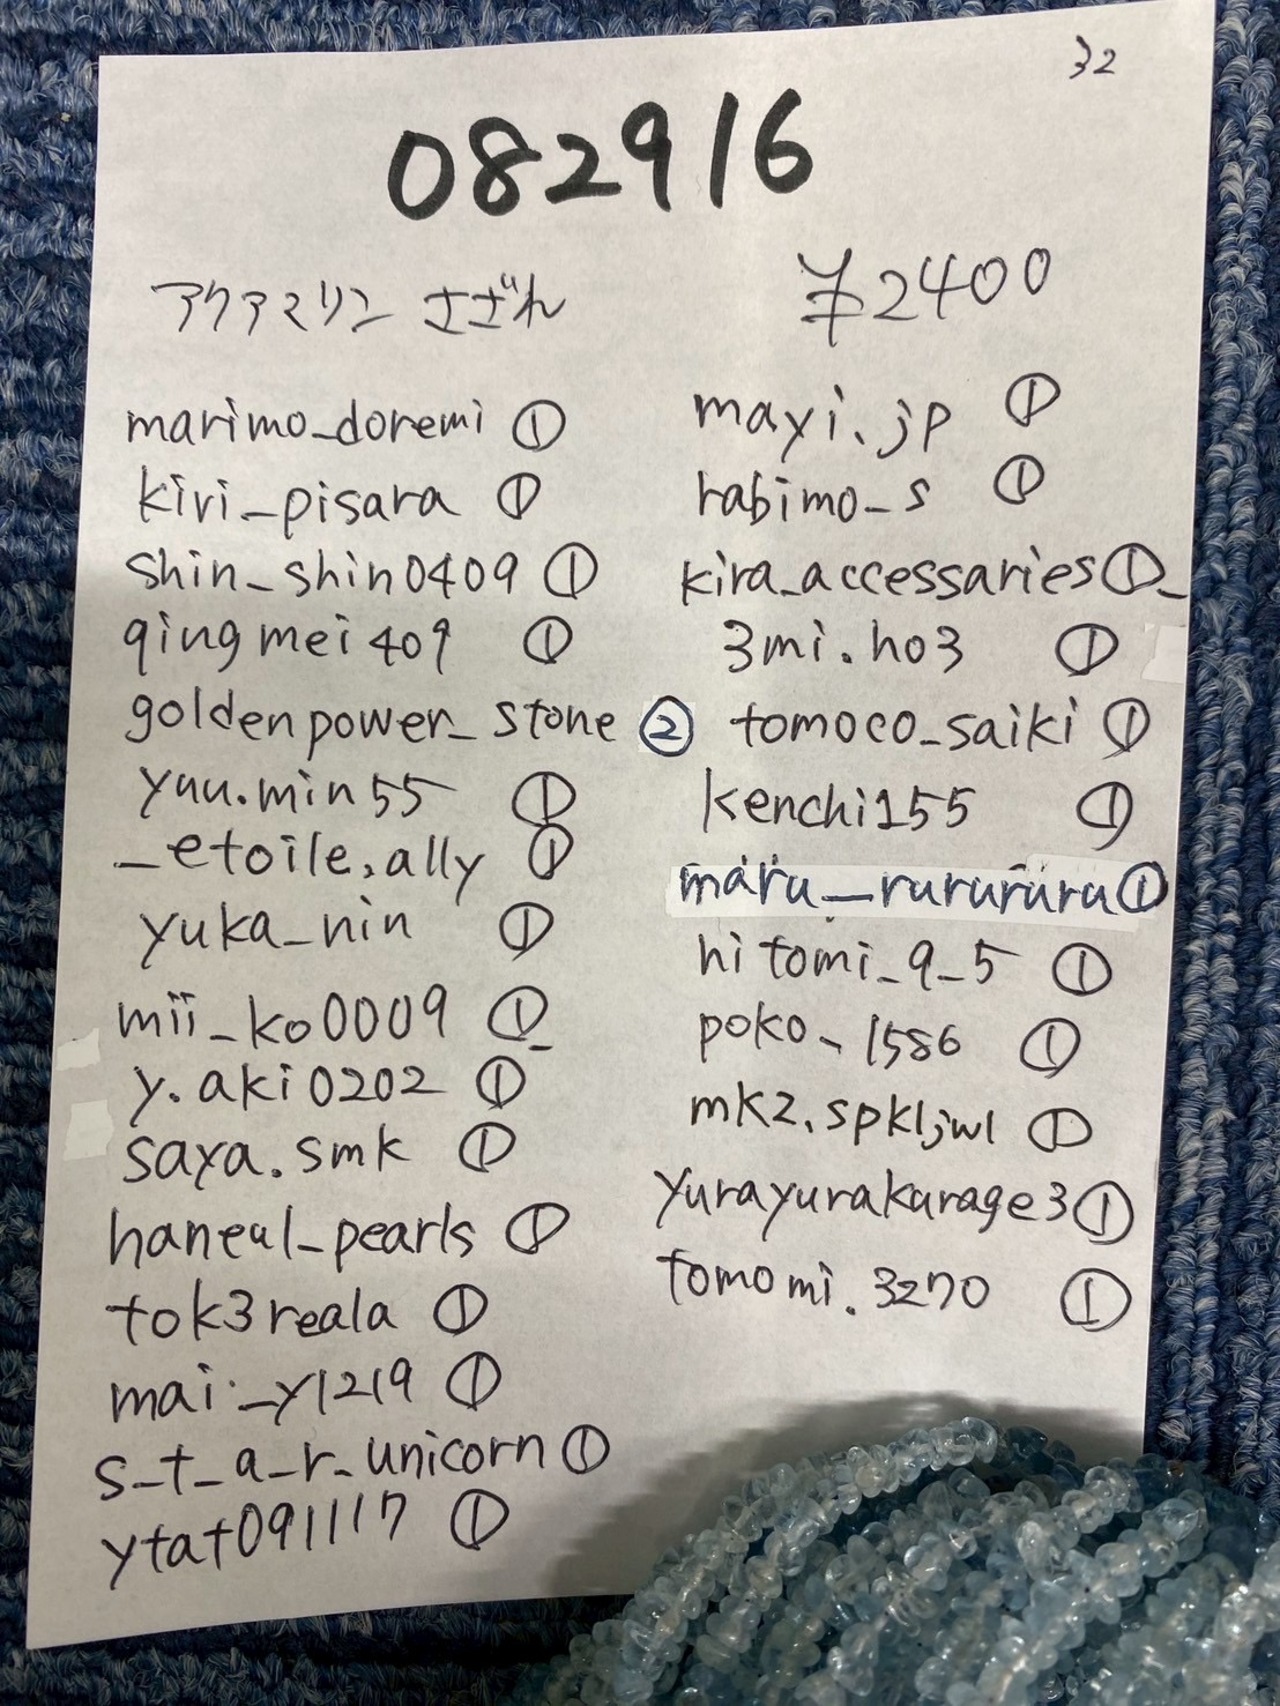 32
082916
アクアマリン さざれ ¥2400
marimo_doremi ①
kiri_pisara ①
shin_shin0409 ①
qingmei409 ①
goldenpower_stone ②
yuu.min55 ①
_etoile.ally ①
yuka_nin ①
mii_ko0009 ①_
y.aki0202 ①
saya.smk ①
haneul_pearls ①
tok3reala ①
mai._y1219 ①
s_t_a_r_unicorn ①
ytat091117 ①
mayi.jp ①
rabimo_s ①
kira_accessaries ①_
3mi.ho3 ①
tomoco_saiki ①
kenchi155 ①
maru_rurururu ①
hitomi_9_5 ①
poko_1586 ①
mk2.spkljwl ①
yurayurakurage3 ①
tomomi.3270 ①